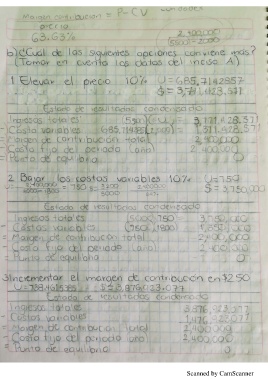 Margen contribución = P-CV
precio
63.63% 2,400,000
b) ¿Cuál de las siguientes opciones conviene más?
(Tomar en cuenta los datos del inciso A)
1 Elevar el precio 10% U=685.7142857
$=3,771,428.571
Estado de resultados condensado
Ingresos totales 3,771,428.571
- Costos variables 1,371,428.571
= Margen de contribución total 2,400,000
- Costo fijo del periodo (año) 2,400,000
= Punto de equilibrio 0
2 Bajar los costos variables 10% U=750
$=3,750,000
Estado de resultados condensado
Ingresos totales (5000)(750) 3,750,000
- Costos variables (1800)(750)
= Margen de contribución total 2,400,000
- Costo fijo del periodo año 2,400,000
= Punto de equilibrio 0
3 Incrementar el margen de contribución en $250
Estado de resultados condensado
Ingresos totales
- Costos variables
= Margen de contribución total 2,400,000
- Costo fijo del periodo año 2,400,000
= Punto de equilibrio 0
Scanned by CamScanner